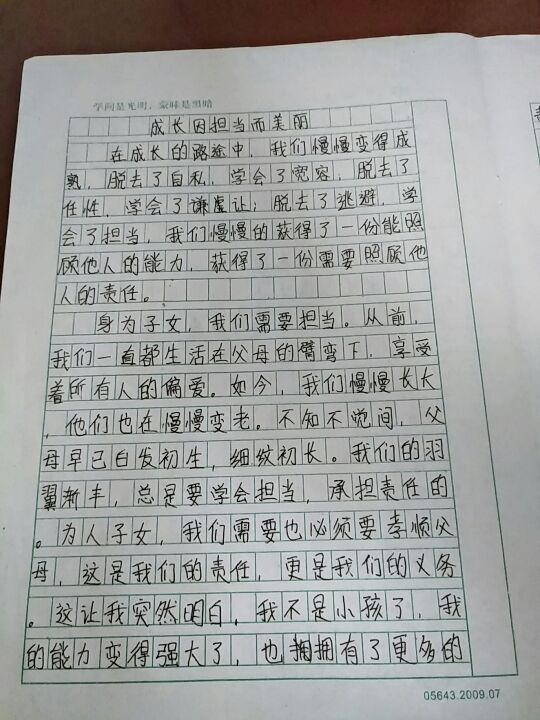 学问是光明，蒙昧是黑暗
成长因担当而美丽
在成长的路途中，我们慢慢变得成
熟，脱去了自私，学会了宽容，脱去了
任性，学会了谦虚让；脱去了逃避，学
会了担当，我们慢慢的获得了一份能照
顾他人的能力，获得了一份需要照顾他
人的责任。
身为子女，我们需要担当。从前，
我们一直都生活在父母的臂弯下，享受
着所有人的偏爱。如今，我们慢慢长大
，他们也在慢慢变老。不知不觉间，父
母早已白发初生，细纹初长。我们的羽
翼渐丰，总是要学会担当，承担责任的
。为人子女，我们需要也必须要孝顺父
母，这是我们的责任，更是我们的义务
。这让我突然明白，我不是小孩了，我
的能力变得强大了，也拥拥有了更多的
05643.2009.07